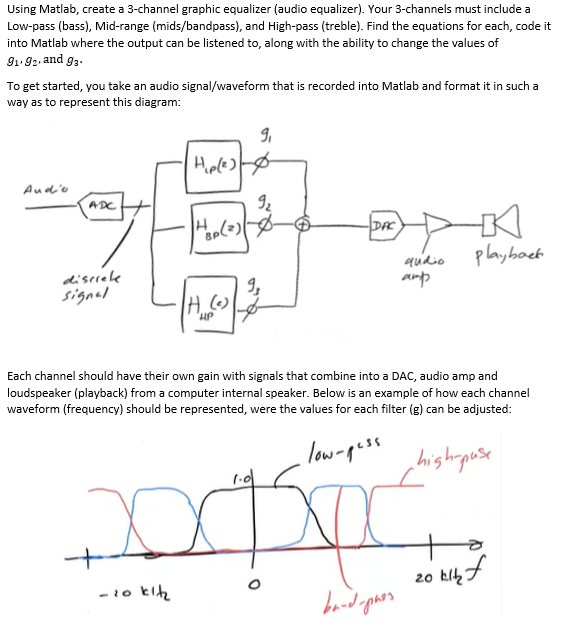 Using Matlab, create a 3-channel graphic equalizer (audio equalizer). Your 3-channels must include a
Low-pass (bass), Mid-range (mids/bandpass), and High-pass (treble). Find the equations for each, code it
into Matlab where the output can be listened to, along with the ability to change the values of
g₁, g₂, and g₃.
To get started, you take an audio signal/waveform that is recorded into Matlab and format it in such a
way as to represent this diagram:
g₁
H_LP(z)
Audio
ADC
g₂
H_BP(z)
DAC
audio
amp
playback
discrete
signal
g₃
H_HP(z)
Each channel should have their own gain with signals that combine into a DAC, audio amp and
loudspeaker (playback) from a computer internal speaker. Below is an example of how each channel
waveform (frequency) should be represented, were the values for each filter (g) can be adjusted:
low-pass
high-pass
1.0
-20 kHz
0
band-pass
20 kHz f